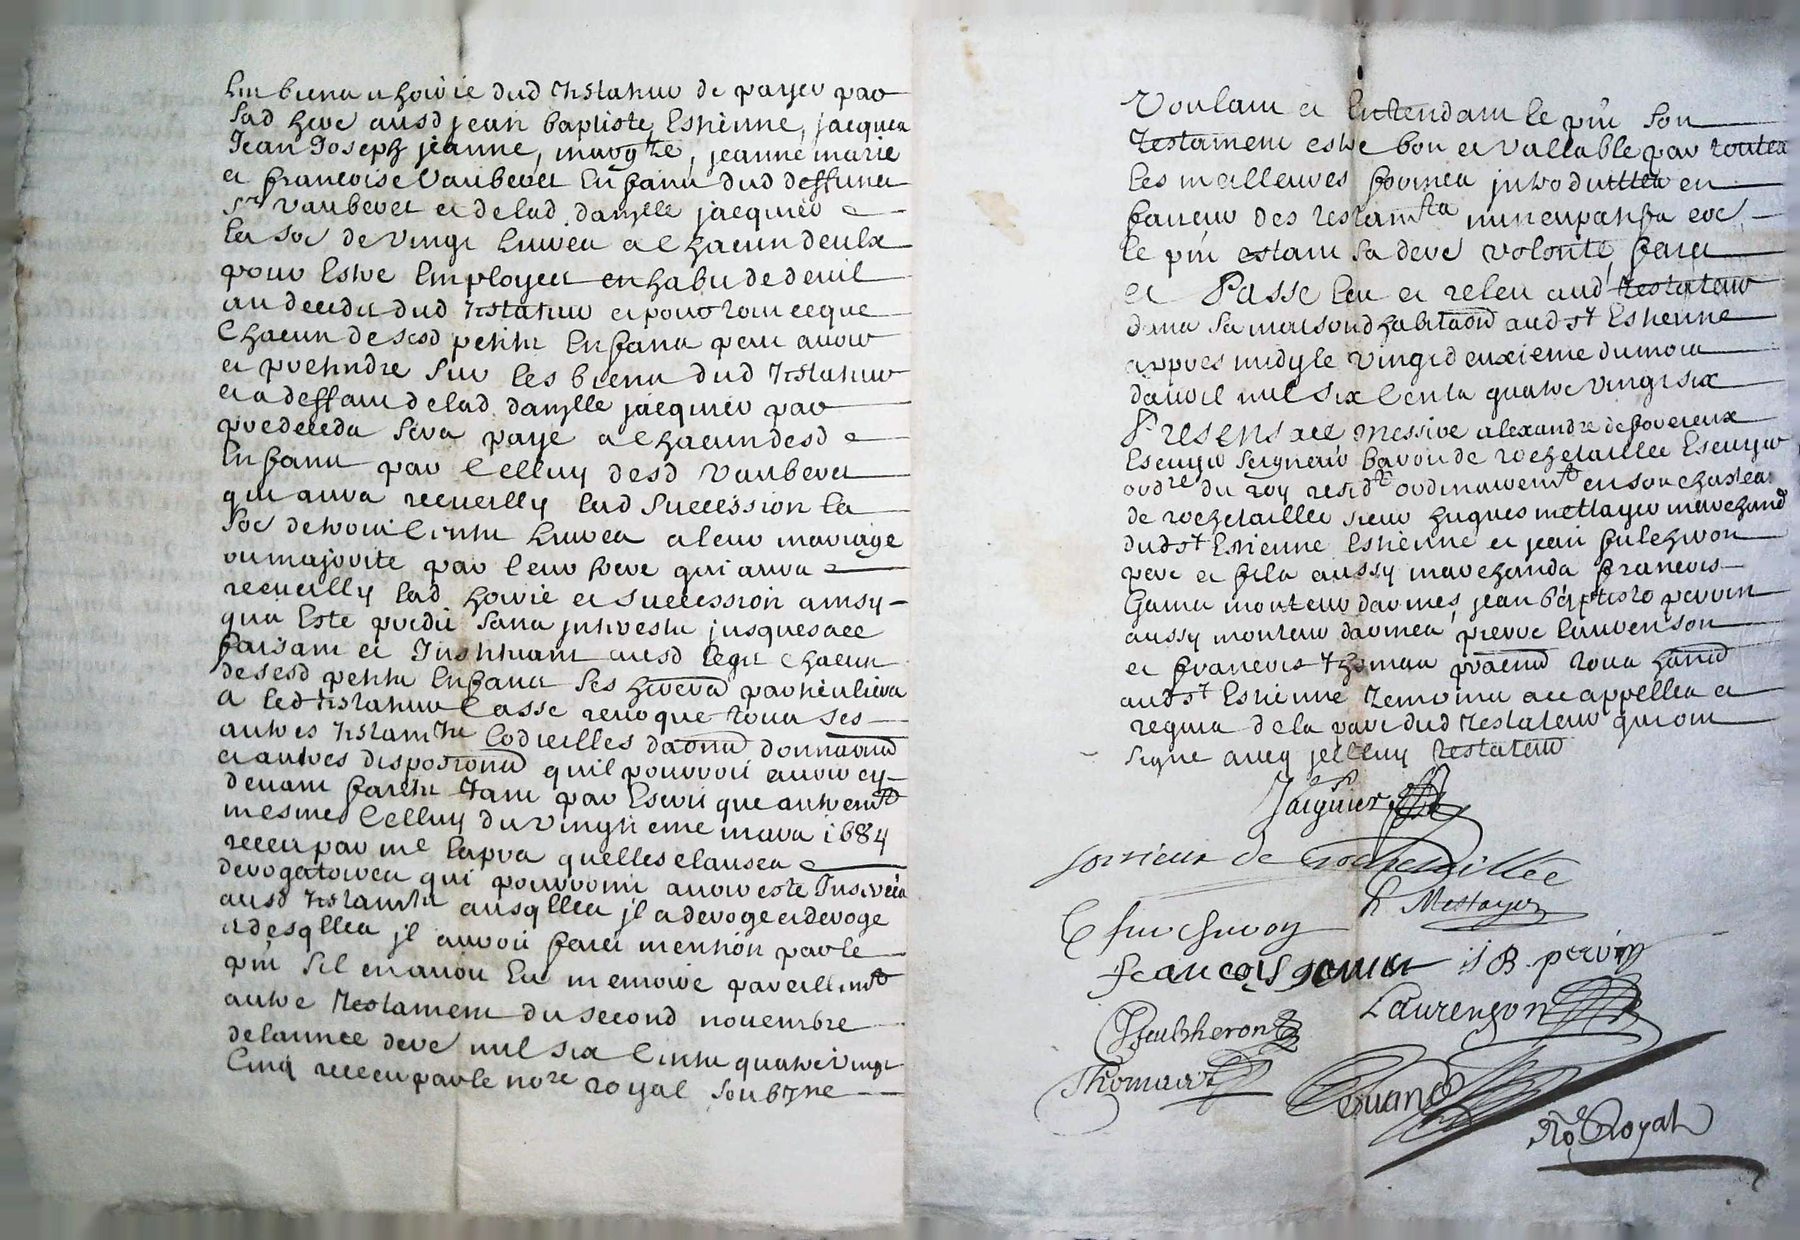 biens et hoirie dud testateur de payer par
lad here ausd jean baptiste, Estienne, jacques
Jean Joseph jeanne, margte, jeanne marie
et francoise Vauberet Enfans dud deffunct
sr Vauberet et de lad damlle jacquier
la soe de vingt livres a chacun deulx
pour estre Employer en habit de deuil
au deceds dud testateur et pour tout ce que
chacun de sesd petits Enfans peut avoir
et prethendre sur les biens dud testateur
et a deffaut de lad damlle jacquier par
predeceda sera paye a chacun desd
Enfans par celluy desd Vauberet
qui aura recueilly lad succession la
soe de trois cents livres a leur mariage
ou majorite par leur frere qui aura
recueilly lad hoirie et succession ainsy
qua este predit sans interestz jusques a ce
faisant et Instituant ausd legat chacun
de sesd petits Enfans ses hered particuliera
a led testateur casse revoque tous ses
autres testamts codicilles daond donnaond
et autres disposiond quil pourroit avoir cy
devant faicts Tant par Escrit que autremt
mesme celluy du vingtieme mars 1684
receu par me lapra quelles clauses
derogatoires qui pourroint avoir este Inserees
ausd testamts ausqlles jl a deroge et deroge
et desqlles jl auroit faict mention par le
pnt sil en avoit eu memoire pareillemt
autre Testament du second novembre
de lannee dere mil six cents quatre vingt
cinq receu par le nore royal soubzne
Voulant et Entendant le pnt son
Testament estre bon et vallable par toutes
les meilleures formes introduittes en
faveur des testamts nuncupatifs eoc
le pnt estant sa dere volonte faict
et Passe leu et releu aud testateur
dans sa maison dhabitaond aud st Estienne
appres midy le vingt deuxieme du mois
davril mil six cents quatre vingt six
Presens a ce messire alexandre de
Escuyer seigneur baron de rochetaillee Escuyer
ordre du roy residt ordinairemt en son chasteau
de rochetaillee sieur hugues mettayer marchand
dud st Estienne Estienne et jean fulchiron
pere et fils aussy marchands francois
Gamet monteur darmes jean baptiste perrin
aussy monteur darmes pierre laurenson
et francois thomas praend tous hand
aud st Estienne temoins a ce appelles et
requis de la part dud testateur qui ont
signe avecq jcelluy testateur
Jacquier
de rochetaillée
h Mettayer
E fulchiron
francois gamet is B. perrin
Laurenson
J fulcheron
Thomas
No Royal